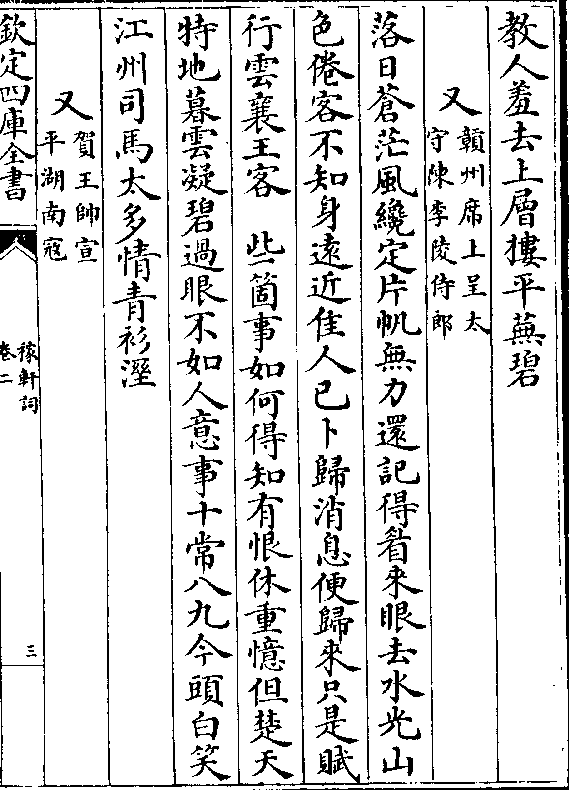 教人羞去上層摟平蕪碧
又
贑州席上呈太
守陳季陵侍郎
落日蒼茫風纔定片帆無力還記得眉來眼去水光山
色倦客不知身逺近佳人已卜歸消息便歸來只是賦
行雲襄王客　些箇事如何得知有恨休重憶但楚天
特地暮雲凝碧過眼不如人意事十常八九今頭白笑
江州司馬太多情青衫溼
又
賀王帥宣
平湖南冦
欽定四庫全書
稼軒詞
卷二
三